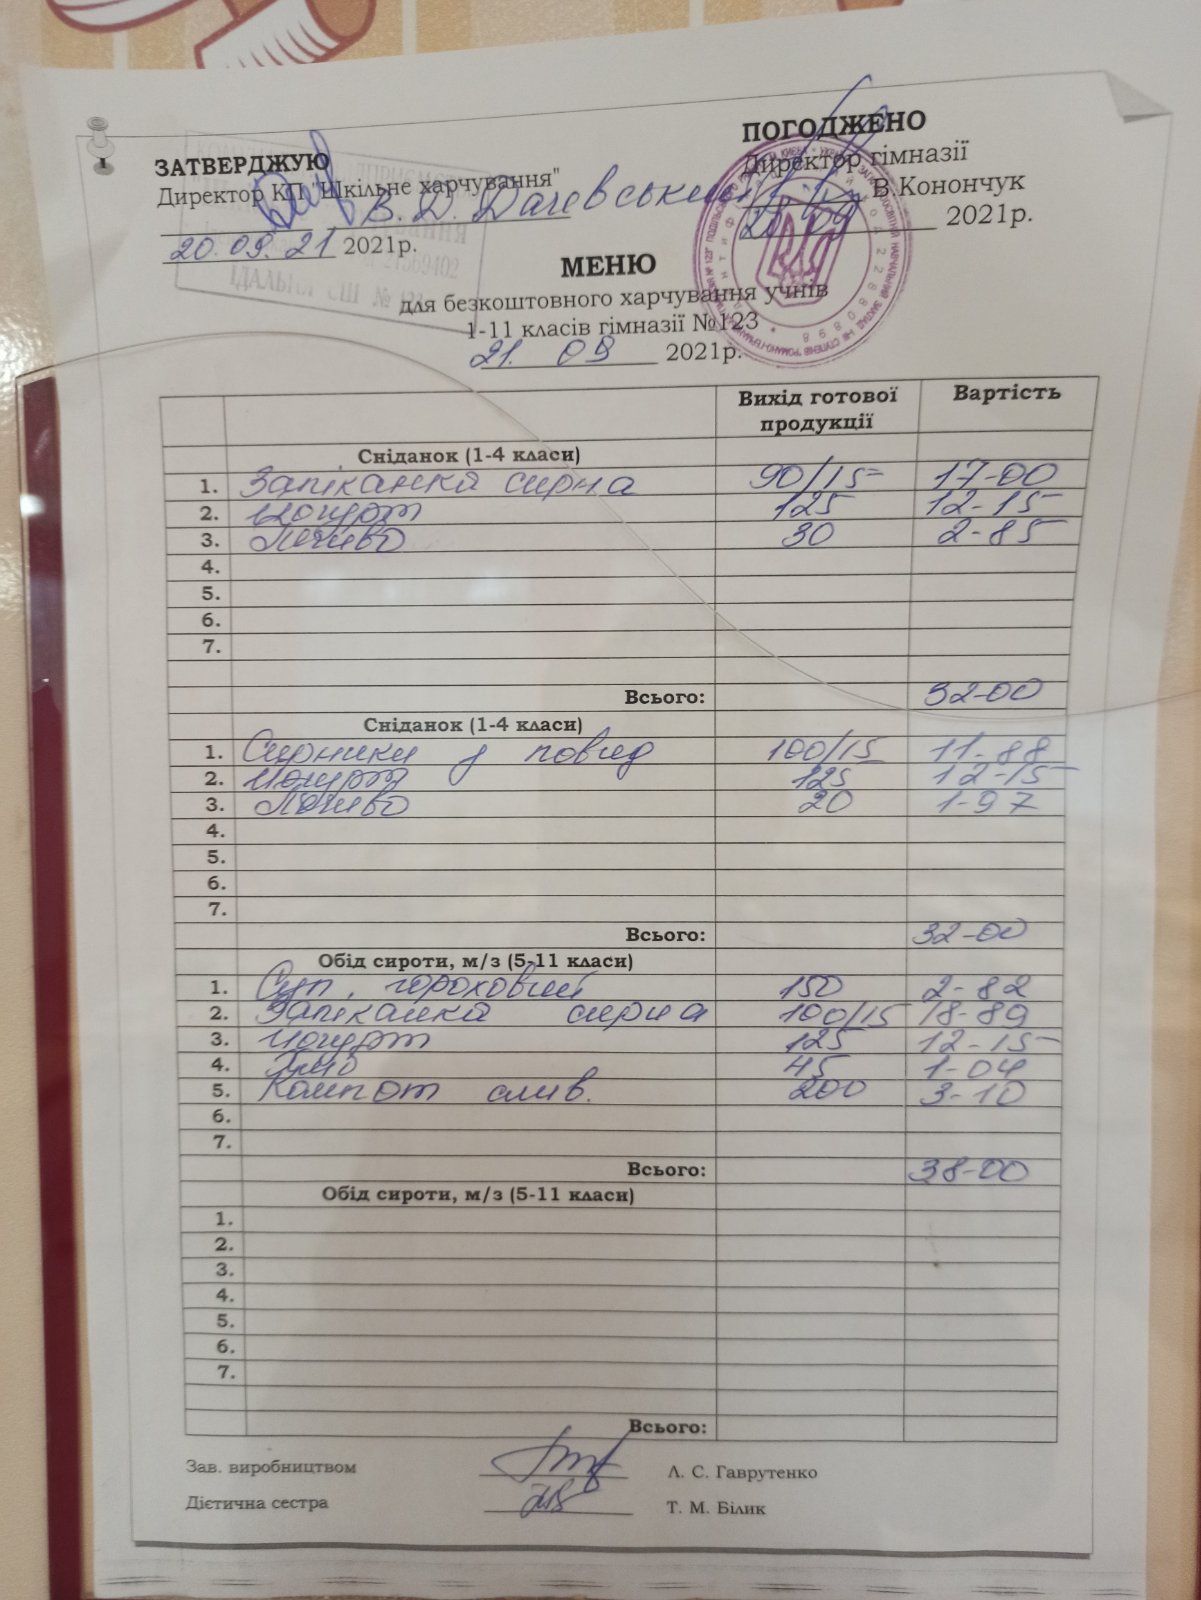 ЗАТВЕРДЖУЮ
Директор КП "Шкільне харчування"
В. Д. Дачевський
20.09.21 2021р.
ІДАЛЬНЯ СШ №
ПОГОДЖЕНО
Директор гімназії
В.Конончук
2021р.
МЕНЮ
для безкоштовного харчування учнів
1-11 класів гімназії №123
21. 09 2021р.
Вихід готової продукції Вартість
Сніданок (1-4 класи)
1. Запіканка сирна 90/15 17-00
2. Йогурт 125 12-15
3. Печиво 30 2-85
4.
5.
6.
7.
Всього: 32-00
Сніданок (1-4 класи)
1. Сирники з повид 100/15 11-88
2. Йогурт 125 12-15
3. Печиво 20 1-97
4.
5.
6.
7.
Всього: 32-00
Обід сироти, м/з (5-11 класи)
1. Суп. гороховий 150 2-82
2. Запіканка сирна 100/15 18-89
3. Йогурт 125 12-15
4. Хліб 45 1-04
5. Компот слив. 200 3-10
6.
7.
Всього: 38-00
Обід сироти, м/з (5-11 класи)
1.
2.
3.
4.
5.
6.
7.
Всього:
Зав. виробництвом Л. С. Гаврутенко
Дієтична сестра Т. М. Білик